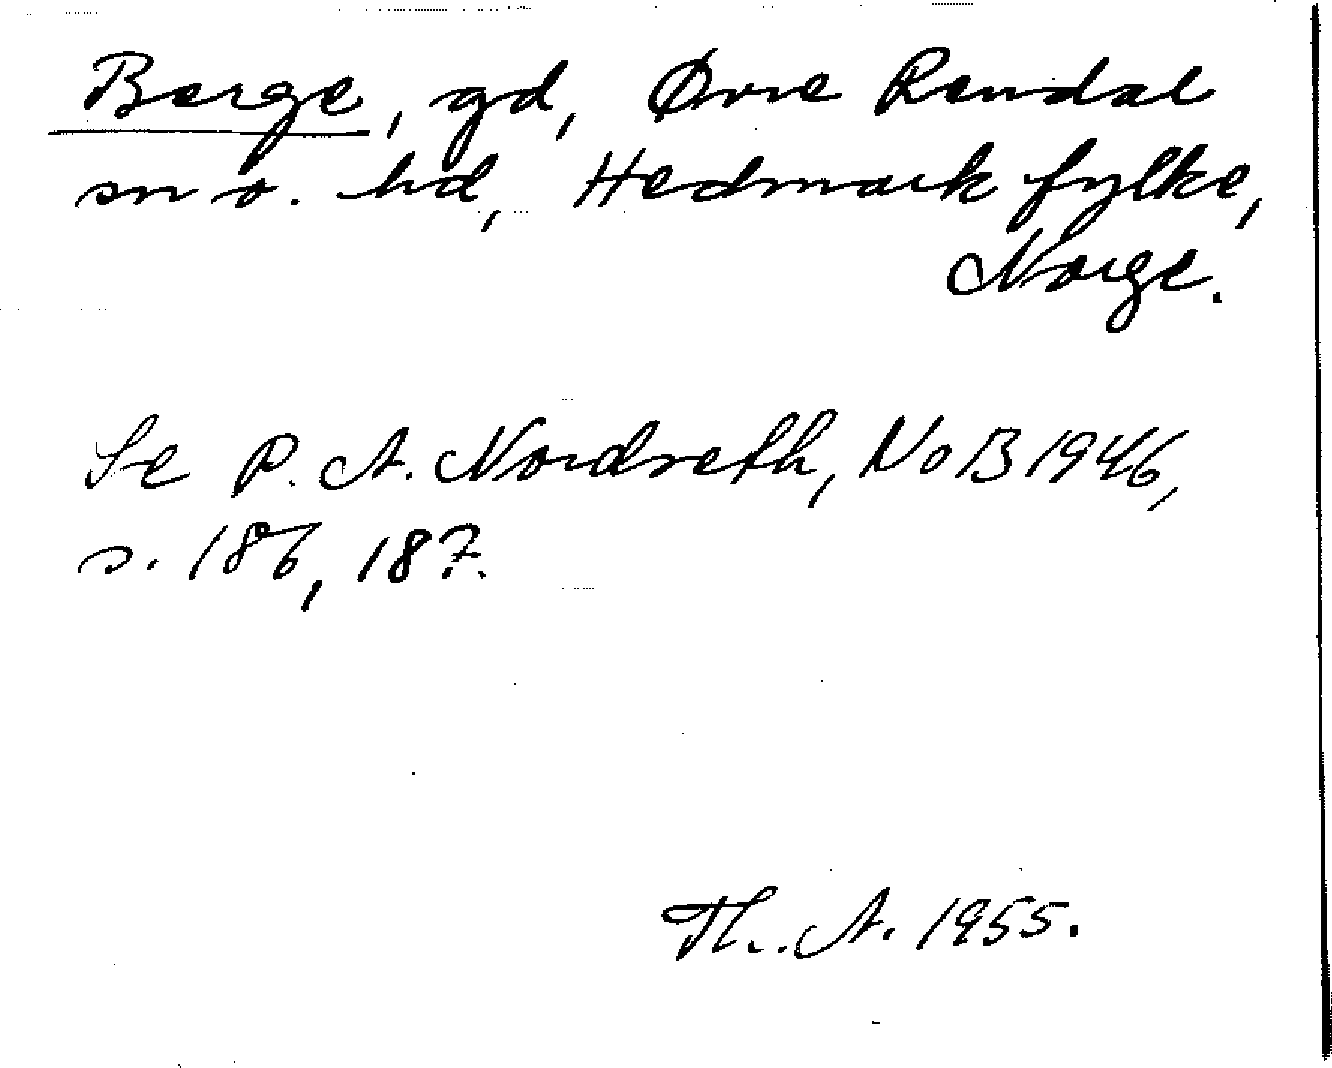 Berge, gd, Övre Rendal
sn o. hd, Hedmark fylke,
Norge.
Se P. A. Nordseth, NoB 1946,
s. 186, 187.
Th. A. 1955.